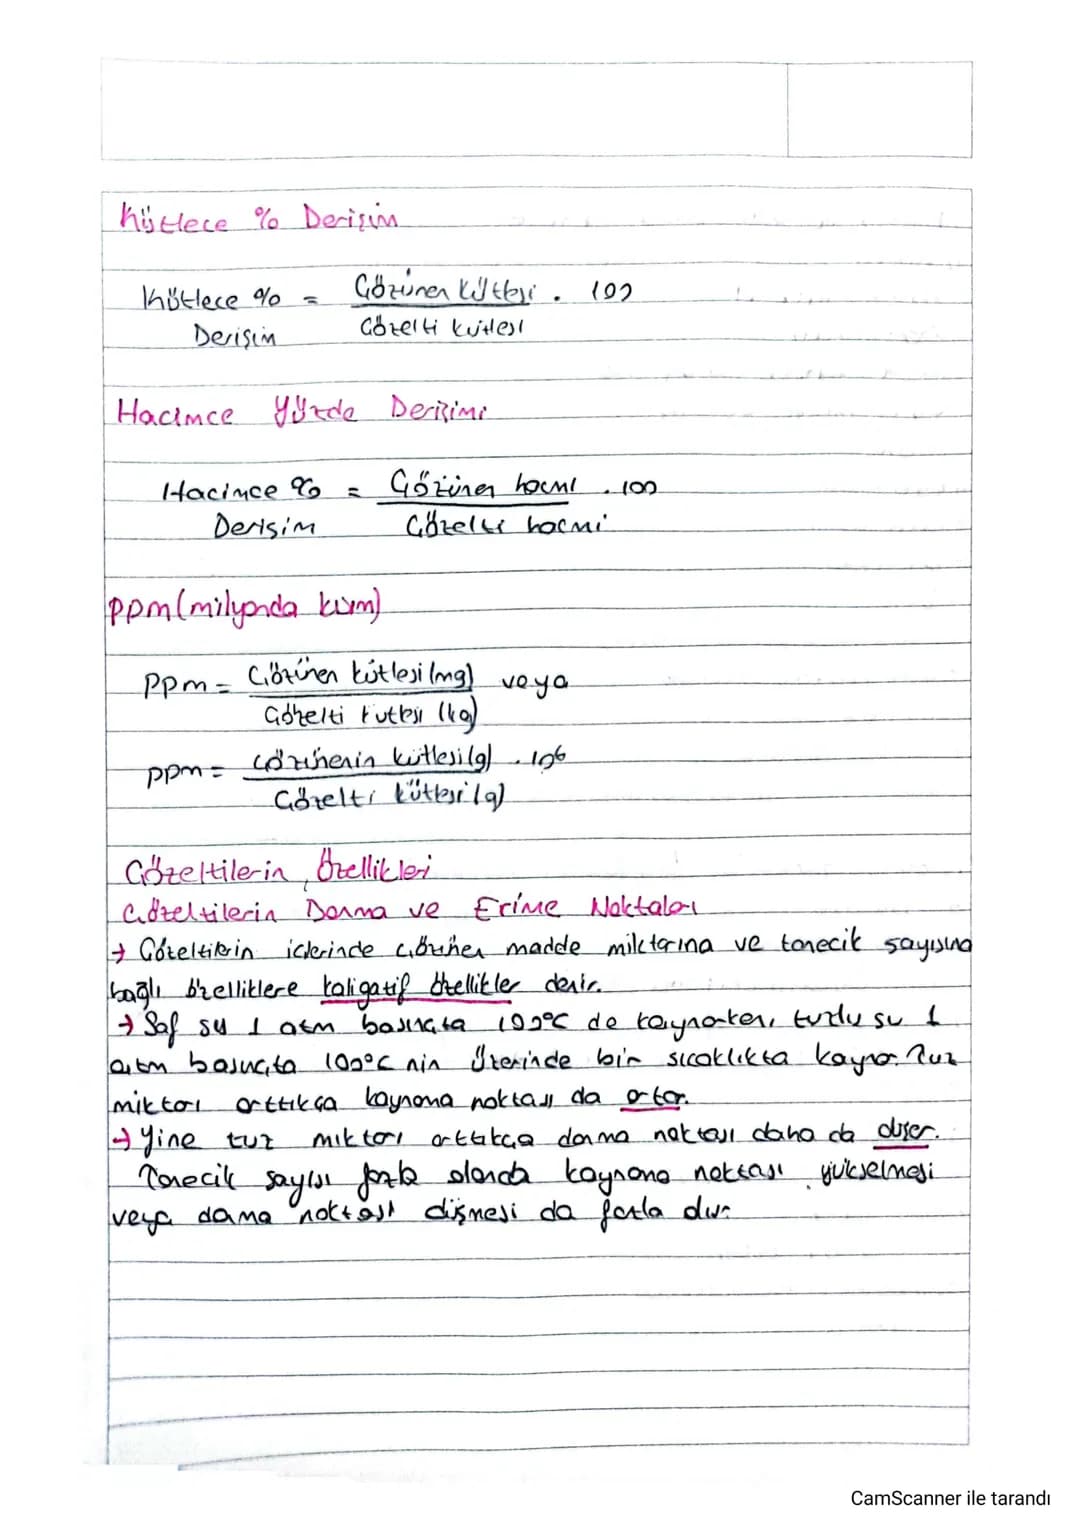 Kütlece % Derişim
Kütlece % = Çözünen kütlesi . 100
Derişim Çözelti kütlesi
Hacimce Yüzde Derişimi
Hacimce % = Çözünen hacmi . 100
Derişim Çözelti hacmi
ppm (milyonda kısım)
ppm = Çözünen kütlesi (mg) veya
Çözelti kütlesi (kg)
ppm = Çözünenin kütlesi (g) . 10⁶
Çözelti kütlesi (g)
Çözeltilerin Özellikleri
Çözeltilerin Donma ve Erime Noktaları
→ Çözeltilerin içlerinde çözünen madde miktarına ve tanecik sayısına
bağlı özelliklere kaligatif özellikler denir.
→ Saf su 1 atm basınçta 100°C de kaynarken, tuzlu su 1
atm basınçta 100°C nin üzerinde bir sıcaklıkta kaynar. Tuz
miktarı arttıkça kaynama noktası da artar.
→ Yine tuz miktarı arttıkça donma noktası daha da düşer.
Tanecik sayısı fazla olanda kaynama noktası yükselmesi
veya donma noktası düşmesi da fazla olur
CamScanner ile tarandı